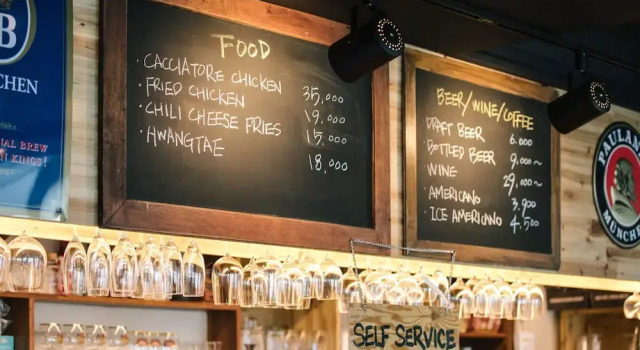 B
CHEN
AL BREW
N KINGS!
FOOD
· CACCIATORE CHICKEN 35,000
· FRIED CHICKEN 19,000
· CHILI CHEESE FRIES 15,000
· HWANGTAE 18,000
BEER/WINE/COFFEE
· DRAFT BEER 6.000
· BOTTLED BEER 9,000~
· WINE 29,000~
· AMERICANO 3,900
· ICE AMERICANO 4,500
PAULAN
MÜNCHE
SELF SERVICE